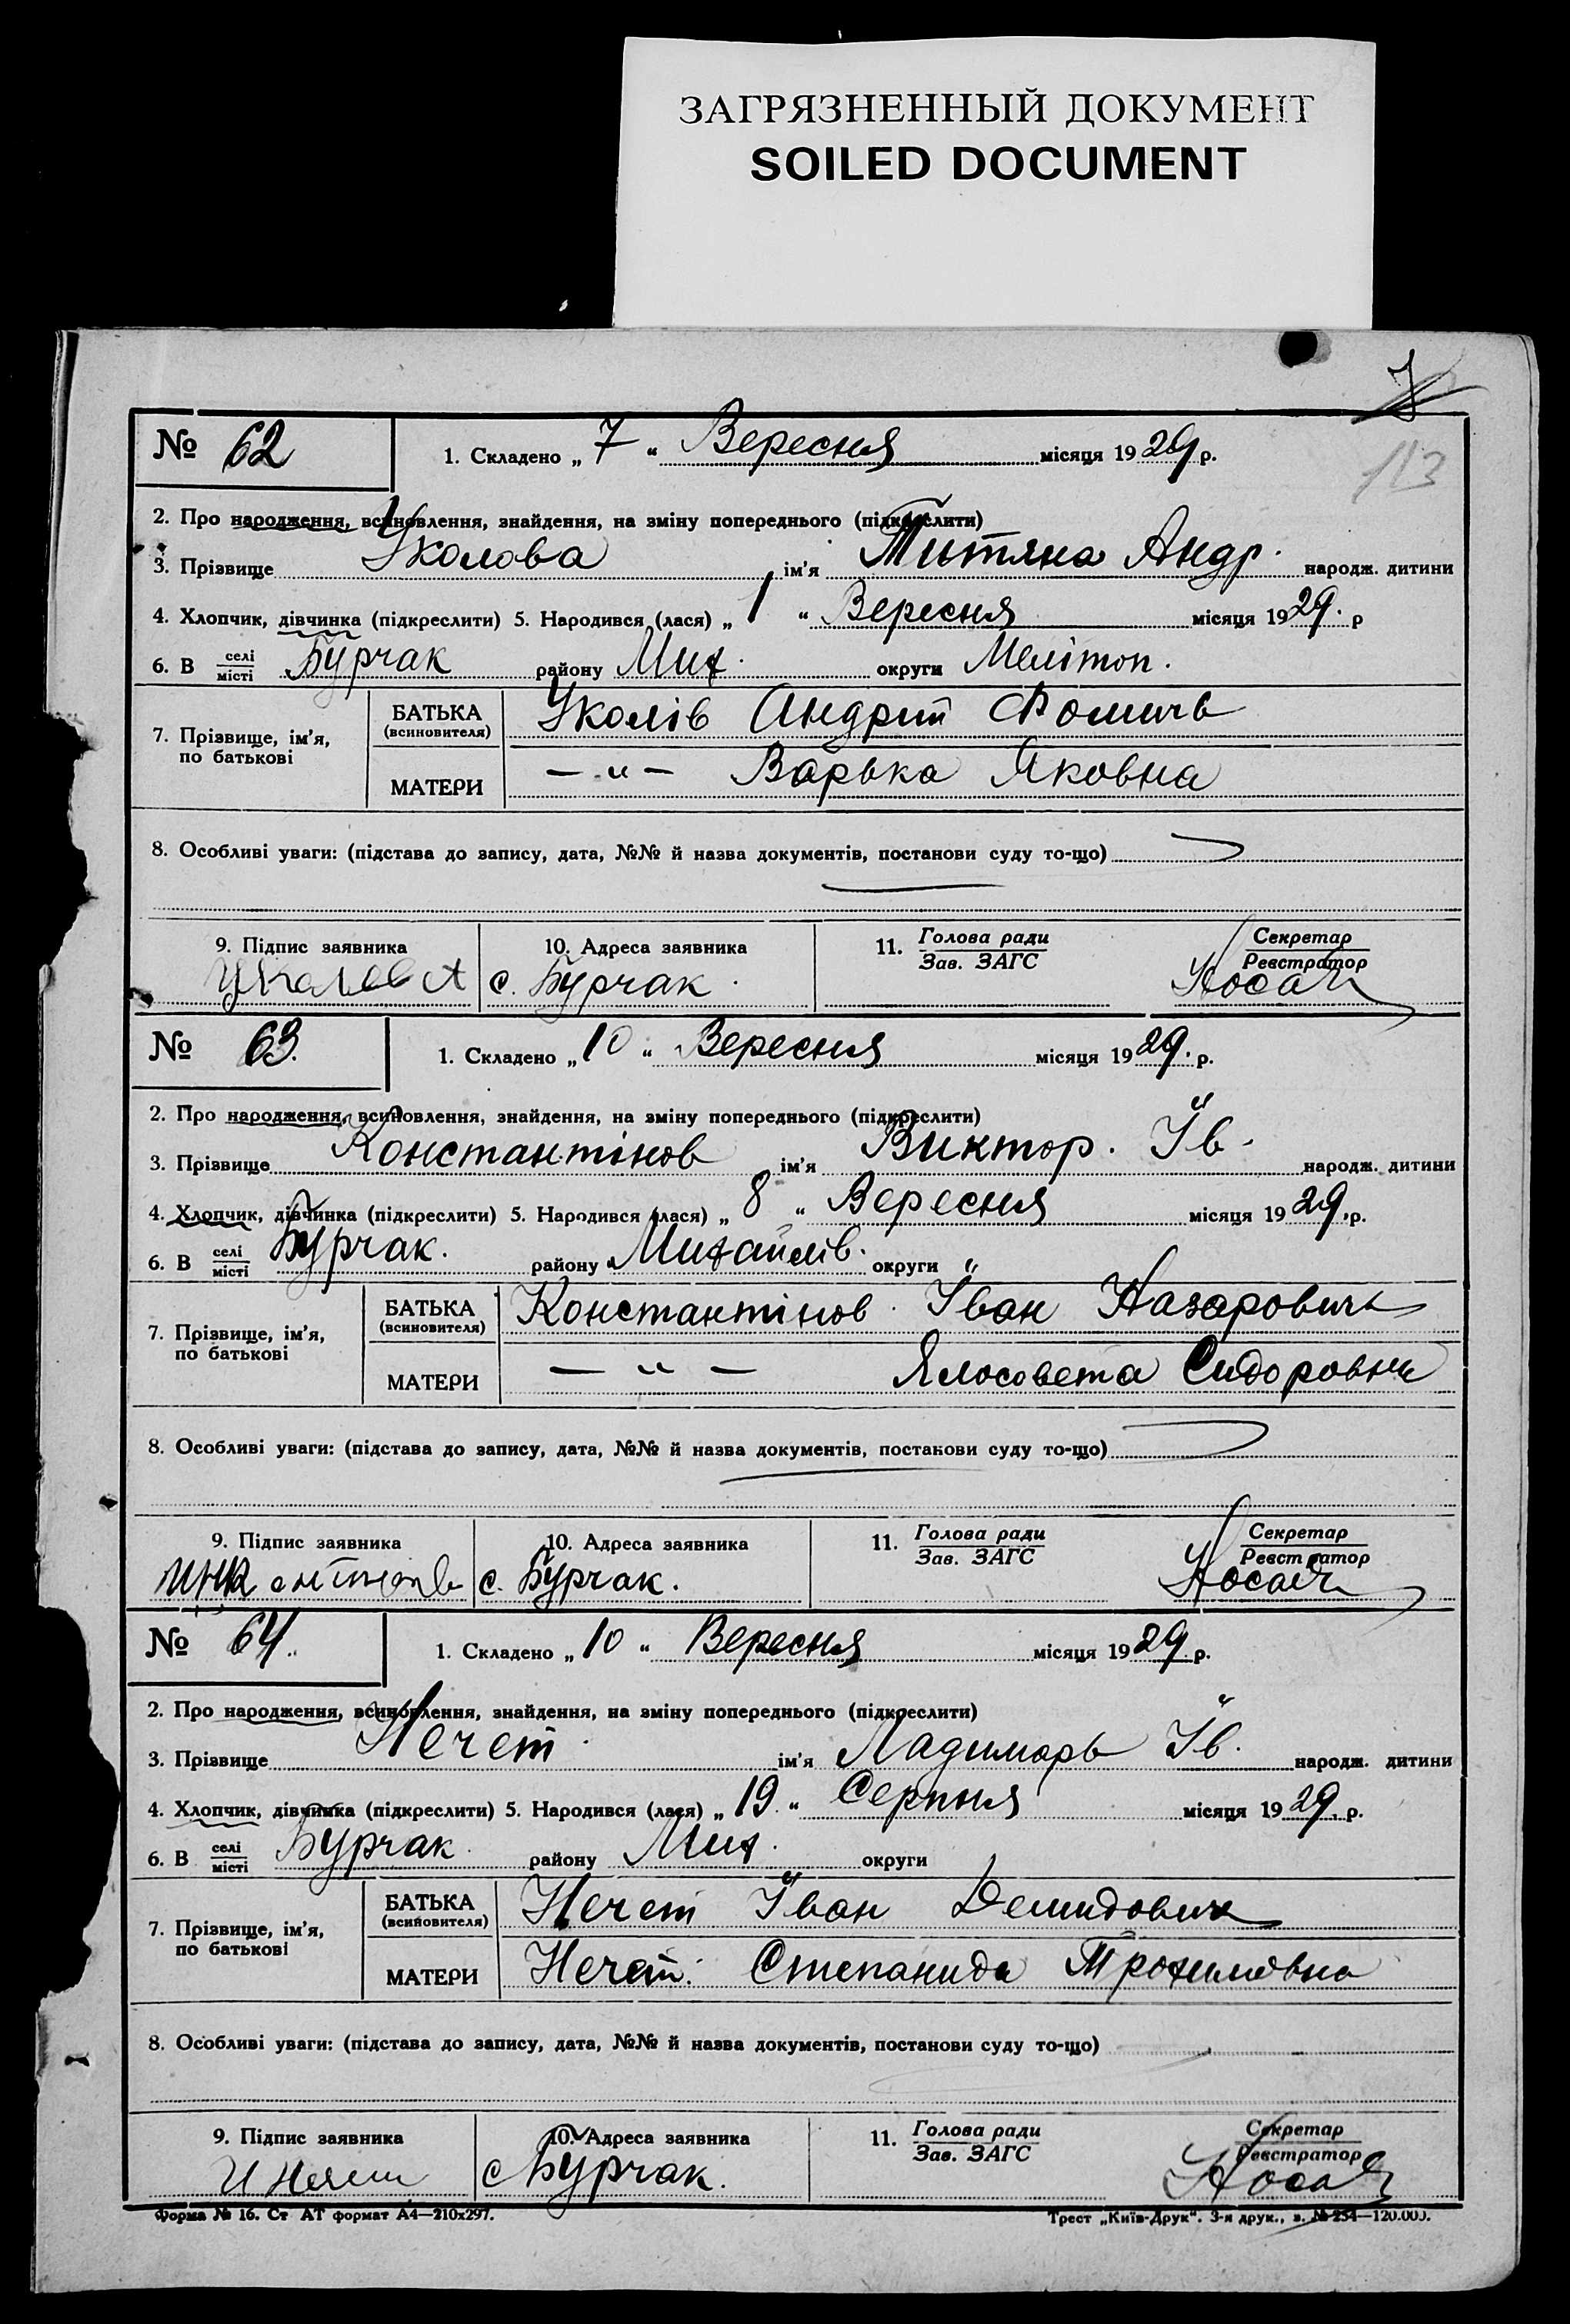 ЗАГРЯЗНЕННЫЙ ДОКУМЕНТ
SOILED DOCUMENT
113
№ 62
1. Складено „ 7 “ Вересня місяця 1929 р.
2. Про народження, всиновлення, знайдення, на зміну попереднього (підкреслити)
3. Прізвище Уколова ім'я Титяна Андр. народж. дитини
4. Хлопчик, дівчинка (підкреслити) 5. Народився (лася) „ 1 “ Вересня місяця 1929. р
6. В селі місті Бурчак району Мих. округи Мелітоп.
7. Прізвище, ім'я, по батькові
БАТЬКА (всиновителя) Уколів Андрий Фомичь
МАТЕРИ — „ — Варька Яковна
8. Особливі уваги: (підстава до запису, дата, №№ й назва документів, постанови суду то-що)
9. Підпис заявника 10. Адреса заявника 11. Голова ради Зав. ЗАГС Секретар Реєстратор
Уколов А с. Бурчак. Носач
№ 63.
1. Складено „ 10 “ Вересня місяця 1929. р.
2. Про народження, всиновлення, знайдення, на зміну попереднього (підкреслити)
3. Прізвище Константінов ім'я Виктор. Ів. народж. дитини
4. Хлопчик, дівчинка (підкреслити) 5. Народився (лася) „ 8 “ Вересня місяця 1929. р.
6. В селі місті Бурчак. району Михайлів. округи „
7. Прізвище, ім'я, по батькові
БАТЬКА (всиновителя) Константінов Іван Назарович
МАТЕРИ — „ — Ялосовета Сидоровна
8. Особливі уваги: (підстава до запису, дата, №№ й назва документів, постанови суду то-що)
9. Підпис заявника 10. Адреса заявника 11. Голова ради Зав. ЗАГС Секретар Реєстратор
с. Бурчак. Носач
№ 64.
1. Складено „ 10 “ Вересня місяця 1929. р.
2. Про народження, всиновлення, знайдення, на зміну попереднього (підкреслити)
3. Прізвище Нечет ім'я Ладимарь Ів. народж. дитини
4. Хлопчик, дівчинка (підкреслити) 5. Народився (лася) „ 19. “ Серпня місяця 1929. р.
6. В селі місті Бурчак району Мих. округи
7. Прізвище, ім'я, по батькові
БАТЬКА (всиновителя) Нечет Іван Демидович
МАТЕРИ Нечет. Степанида Трохимовна
8. Особливі уваги: (підстава до запису, дата, №№ й назва документів, постанови суду то-що)
9. Підпис заявника 10. Адреса заявника 11. Голова ради Зав. ЗАГС Секретар Реєстратор
с Бурчак. Носач
Форма № 16. Ст АТ формат А4—210х297. Трест „Київ-Друк“. 3-я друк., з. № 254—120.000.